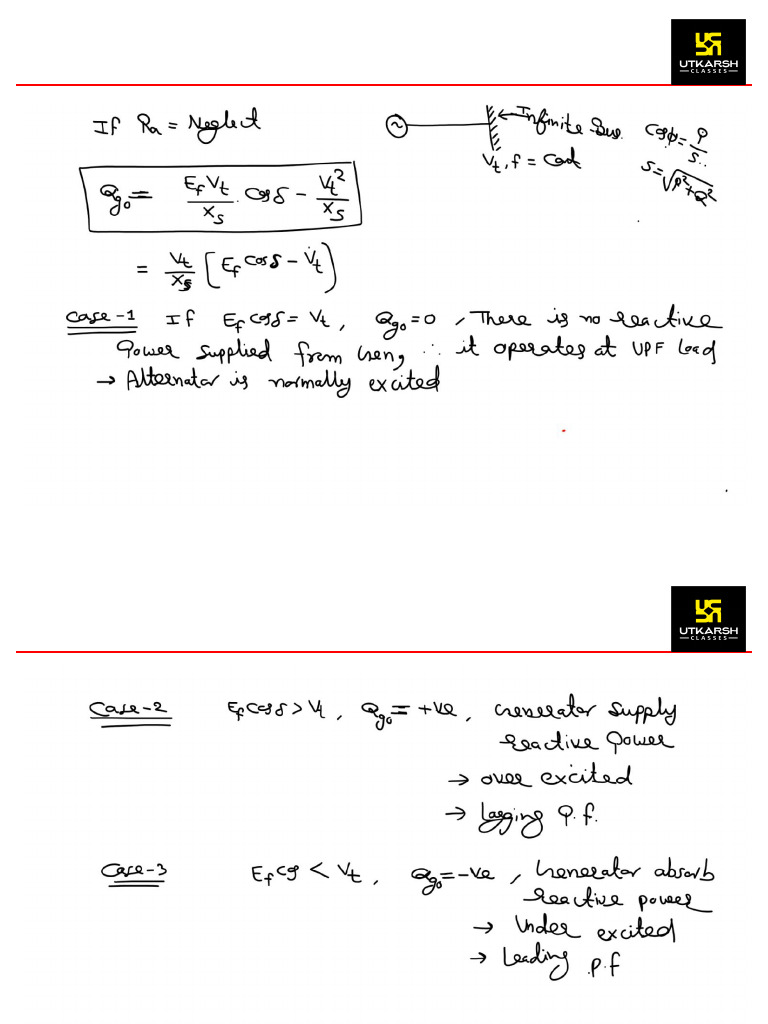 UTKARSH
CLASSES
If Ra = Neglect
Infinite Bus.
Vt, f = Const
cosφ = P/S..
S = √P²+Q²
Qg₀ = EfVt/Xs · cosδ − Vt²/Xs
= Vt/Xs [Ef cosδ − Vt]
Case-1 If Ef cosδ = Vt, Qg₀ = 0, There is no reactive
Power supplied from Gen, ∴ it operates at UPF Load
→ Alternator is normally excited
UTKARSH
CLASSES
Case-2 Ef cosδ > Vt, Qg₀ = +ve, Generator Supply
reactive Power
→ over excited
→ Lagging P.f.
Case-3 Ef cos < Vt, Qg₀ = -ve, Generator absorb
reactive power
→ Under excited
→ Leading p.f